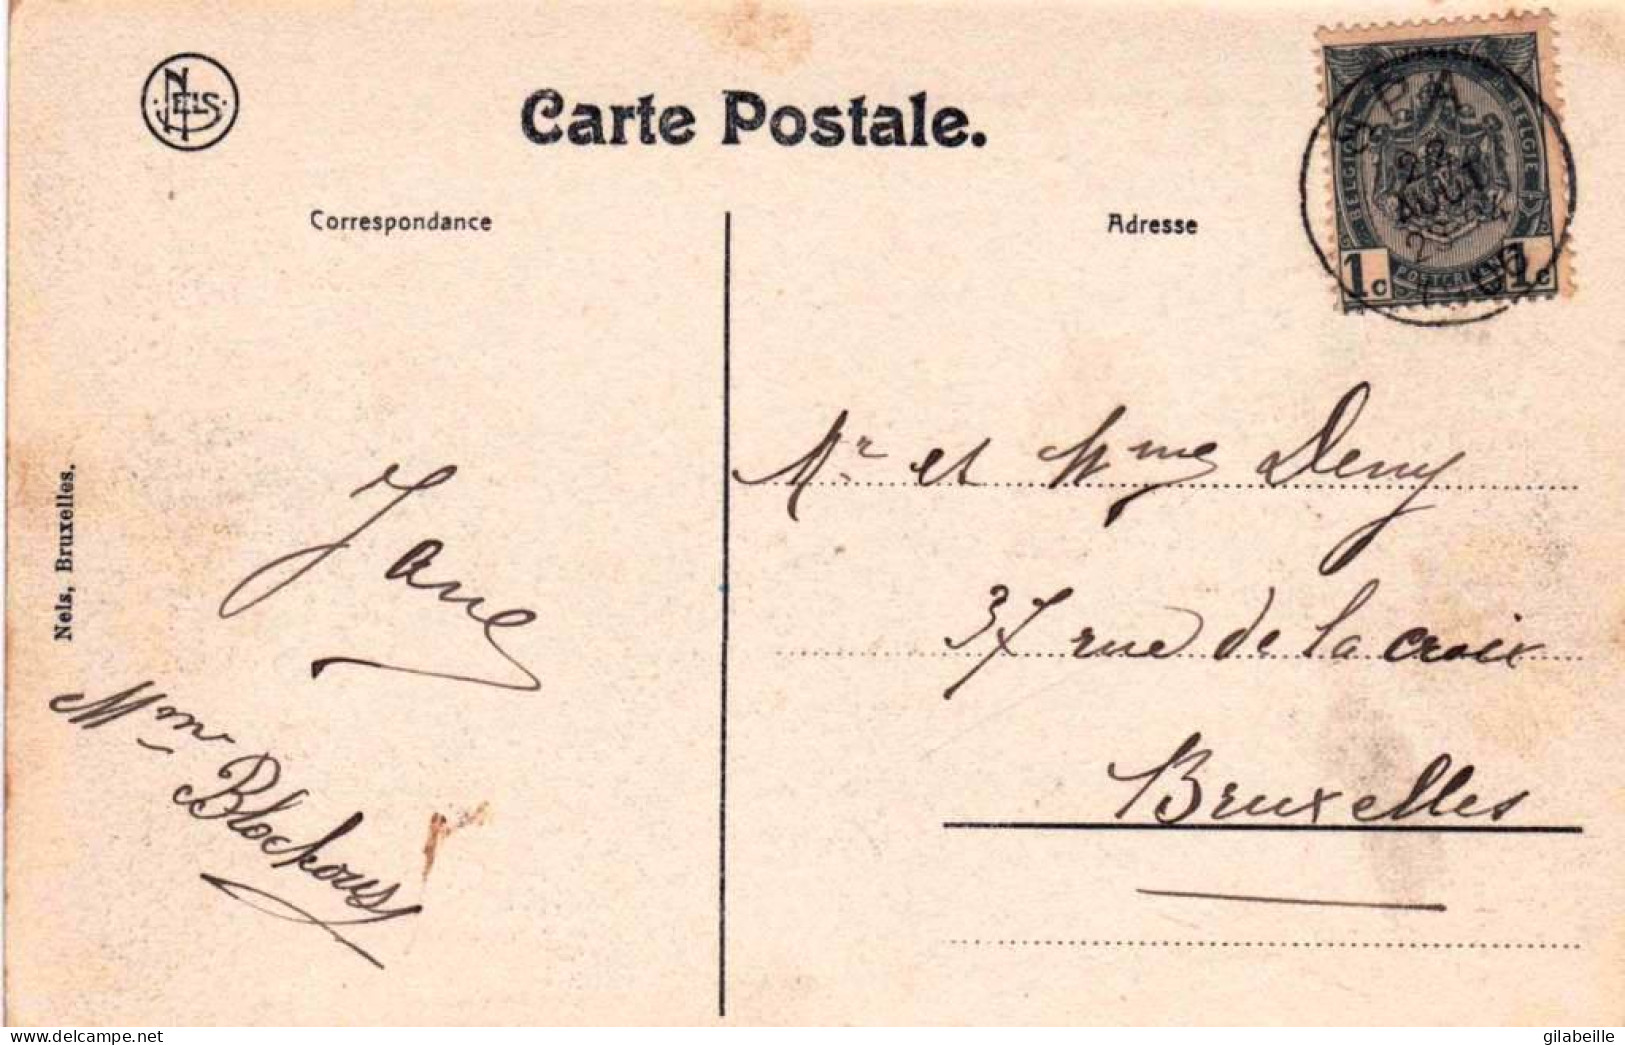 NELS
Carte Postale.
Correspondance
Adresse
SPA
22
AOUT
BELGIQUE
BELGIE
1c
1c
Nels, Bruxelles.
Jane
Mme Blockouse
Mr et Mme Deny
37 rue de la croix
Bruxelles
www.delcampe.net
gilabeille